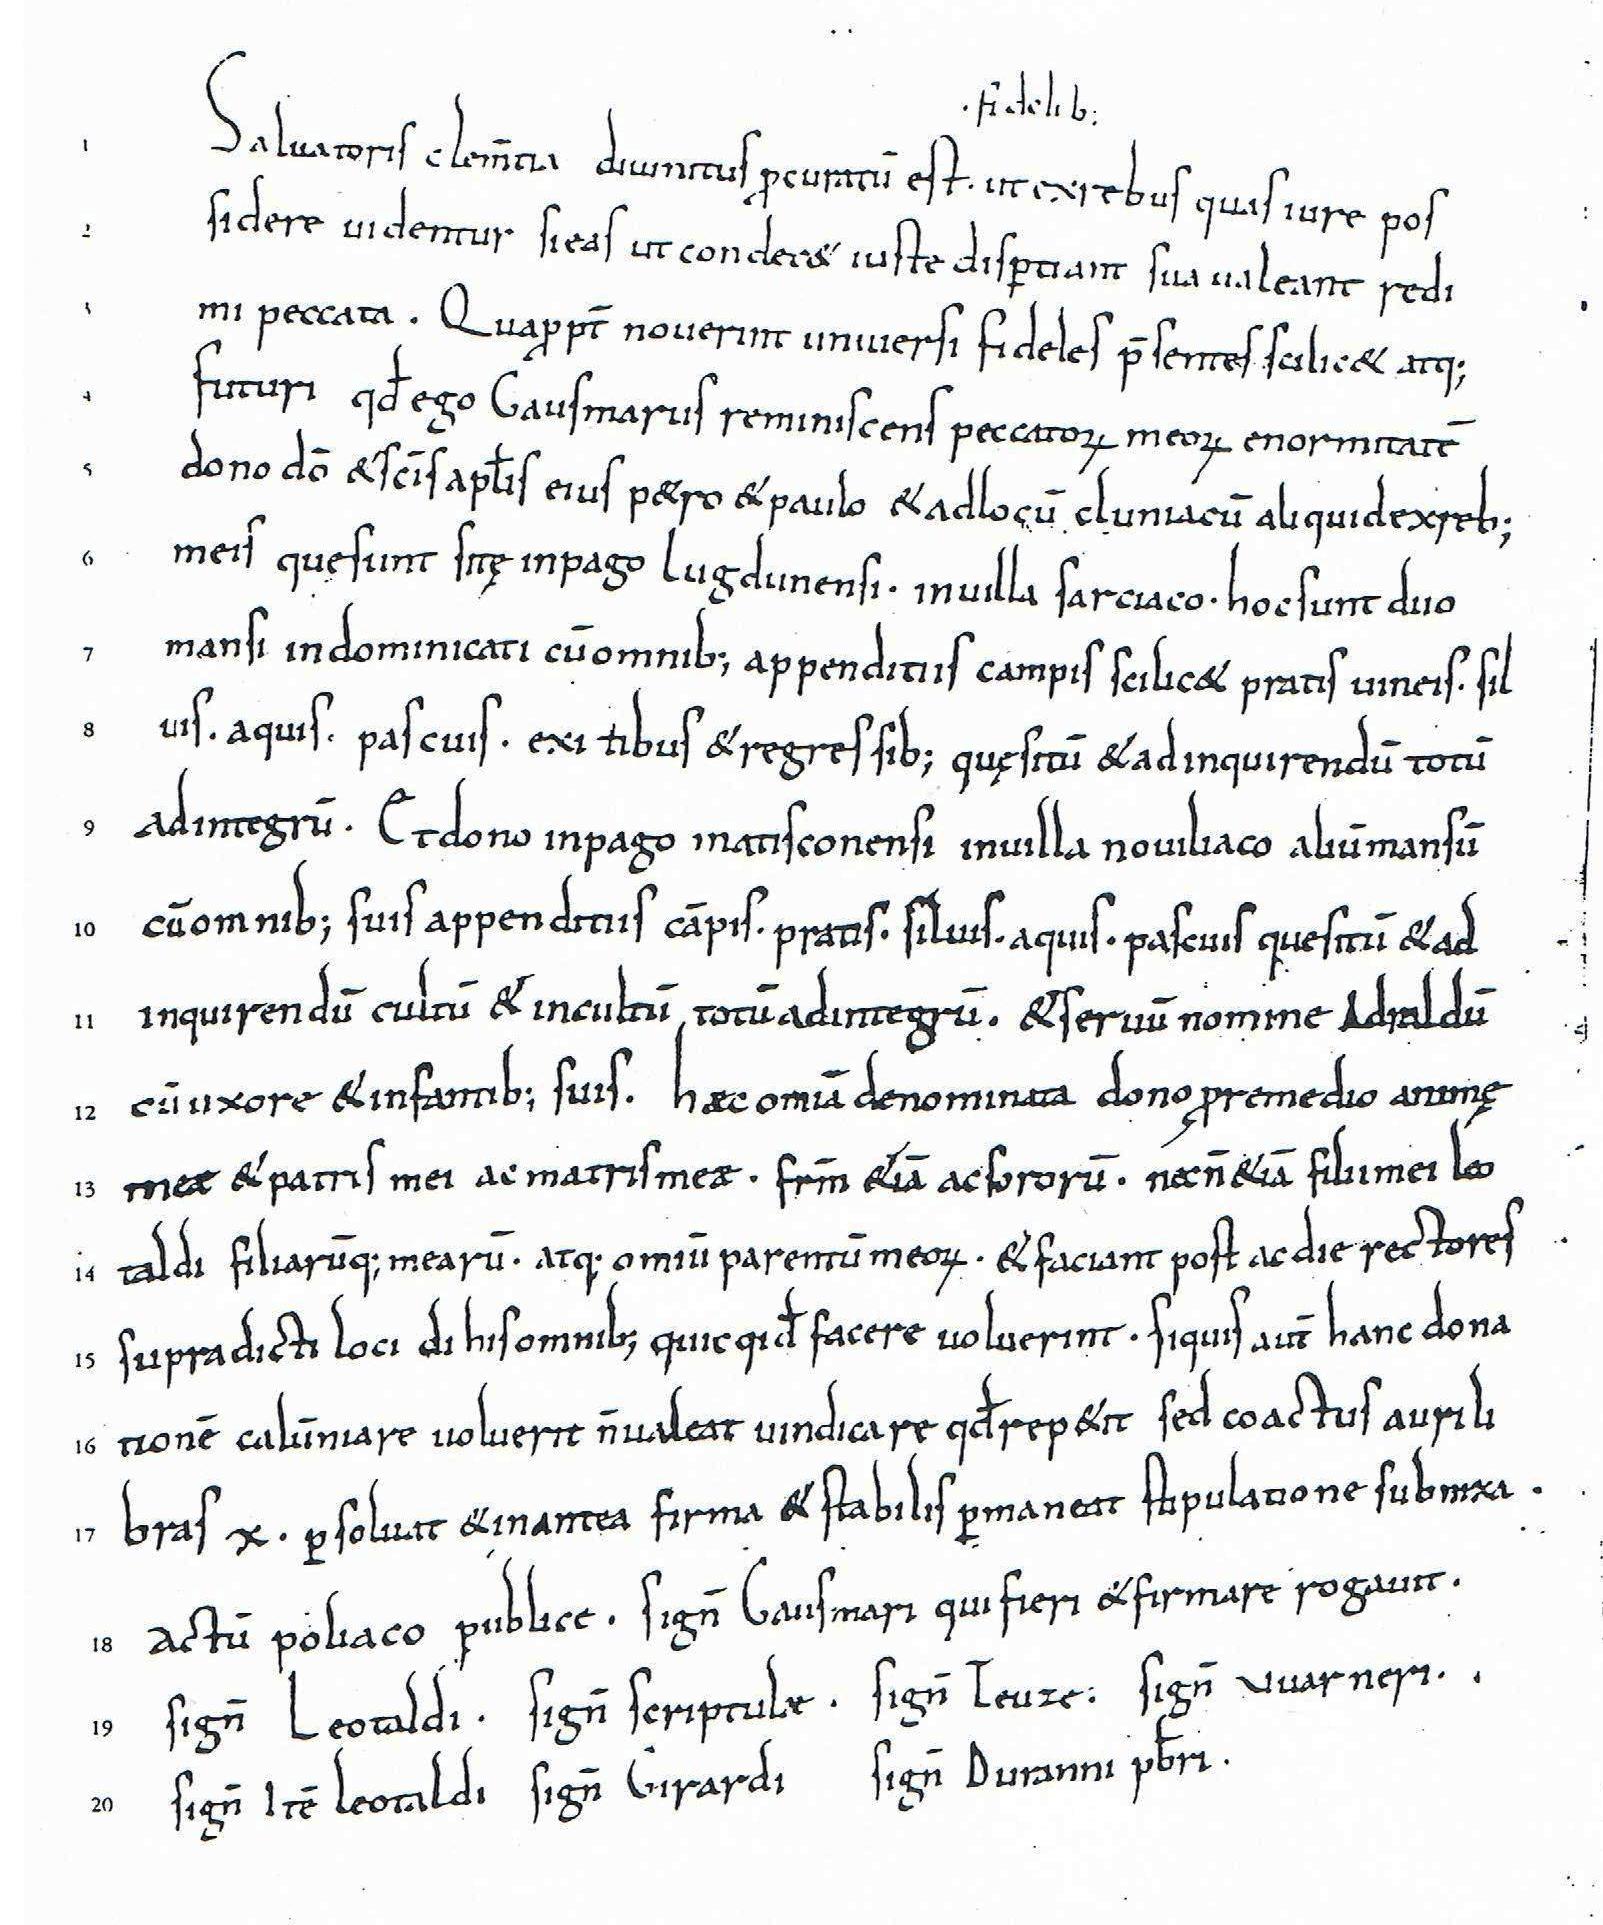 ·fidelib:
1 Saluatoris clem̄tia diuinitus ꝓcuratū est· ut ex rebus quas iure pos
2 sidere uidentur si eas ut condec& iuste disꝑtiant sua ualeant redi
3 mi peccata. Quaꝓpt̄ nouerint uniuersi fideles p̄sentes scilic& atq;
4 futuri qđ ego Gausmarus reminiscens peccatoꝝ meoꝝ enormitatē
5 dono dō & sc̄is apƚis eius p&ro & paulo & ad locū cluniacū aliquid ex reb;
6 meis que sunt sitę in pago lugdunensi· in uilla sarciaco· hoc sunt duo
7 mansi indominicati cū omnib; appenditiis campis scilic& pratis uineis· sil
8 uis· aquis· pascuis· exitibus & regressib; quęsitū & adinquirendū totū
9 ad integrū· Et dono in pago matisconensi in uilla nouiliaco aliū mansū
10 cū omnib; suis appenditiis cāpis· pratis· siluis· aquis· pascuis quesitū & ad
11 inquirendū cultū & incultū totū ad integrū· & seruū nomine Adraldū
12 cū uxore & infantib; suis. hæc omīa denominata dono ꝓ remedio animę
13 meæ & patris mei ac matris meæ· frm̄ &iā ac sororū· necn̄ &iā filii mei leo
14 taldi filiarūq; mearū· atq; omiū parentū meoꝝ· & faciant post ac die rectores
15 supradicti loci di his omnib; quicqid̄ facere uoluerint· siquis aut̄ hanc dona
16 tionē calūniare uoluerit n̄ ualeat uindicare qđ rep&it sed coactus auri li
17 bras x· ꝑsoluat & inantea firma & stabilis ꝑmaneat stipulatione subnixa·
18 actū poliaco publice· sign̄ Gausmari qui fieri & firmare rogauit·
19 sign̄ Leotaldi· sign̄ scriptulæ· sign̄ Teuze: sign̄ vuarneri·
20 sign̄ Itē leotaldi sign̄ Girardi sign̄ Duranni pb̄ri·